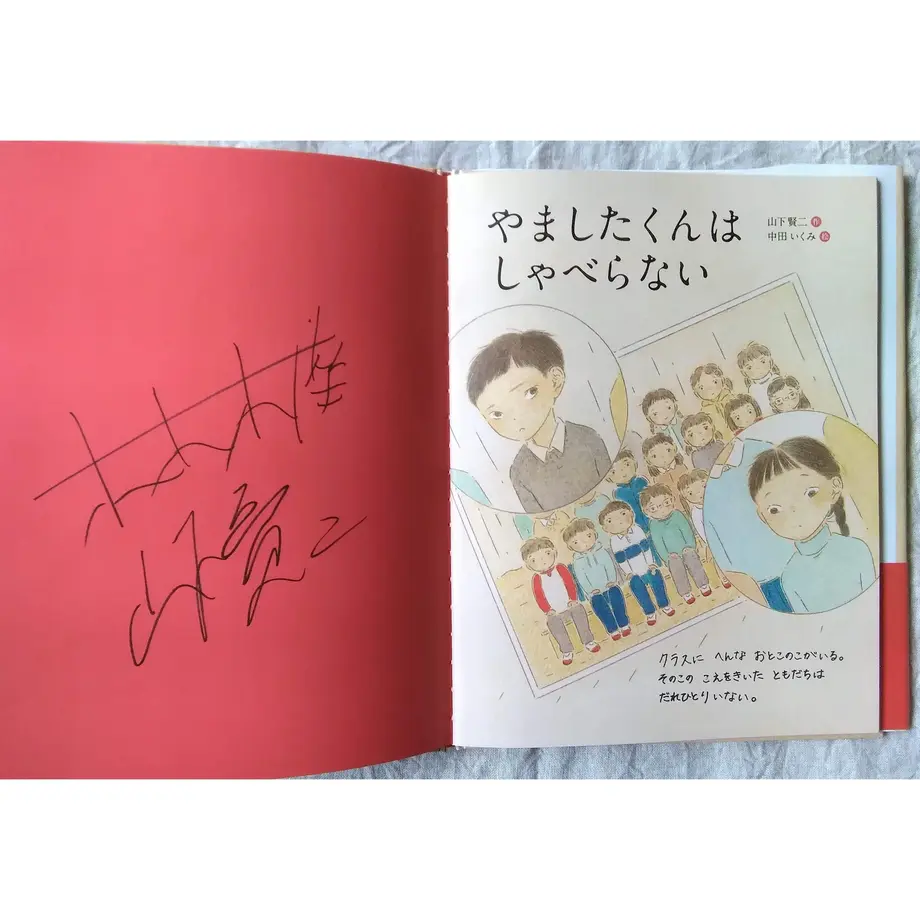 ホホホ座
山下賢二
やましたくんは
しゃべらない
山下 賢二 作
中田 いくみ 絵
クラスに へんな おとこのこがいる。
そのこの こえをきいた ともだちは
だれひとりいない。